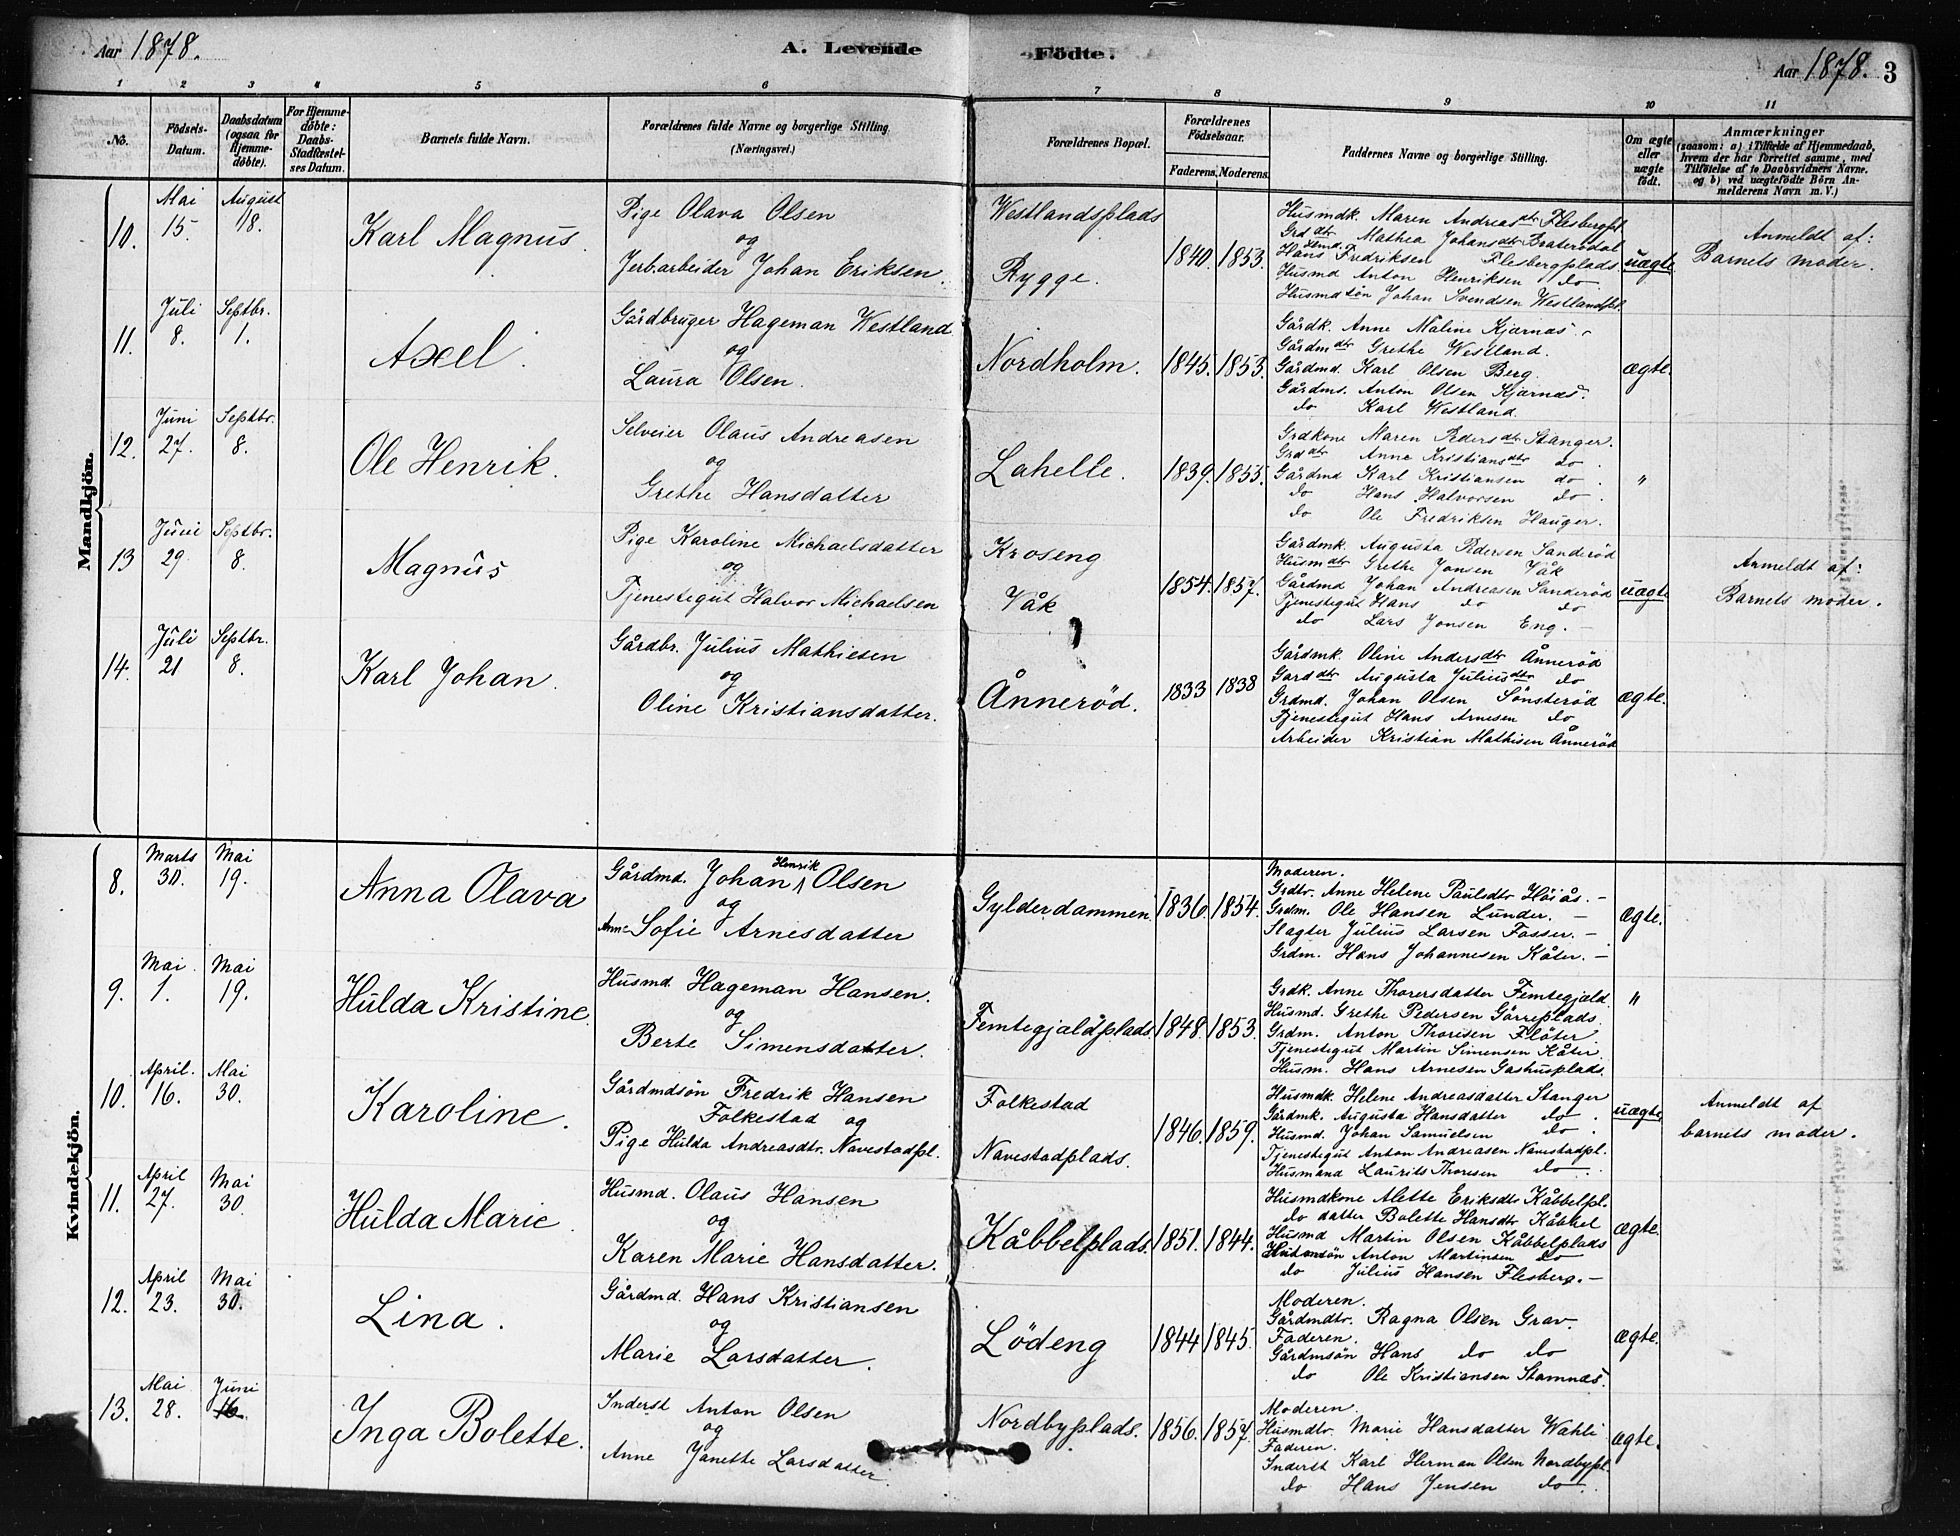 Aar 1878.
A. Levende Födte.
Aar 1878. 3
1 2 3 4 5 6 7 8 9 10 11
No.
Födsels-Datum.
Daabsdatum (ogsaa for Hjemme-döbte).
For Hjemme-döbte: Daabs-Stadfæstel-ses Datum.
Barnets fulde Navn.
Forældrenes fulde Navne og borgerlige Stilling. (Næringsvei.)
Forældrenes Bopæl.
Forældrenes Födselsaar.
Faderens. Moderens.
Faddernes Navne og borgerlige Stilling.
Om ægte eller uægte födt.
Anmærkninger
(saasom: a) i Tilfælde af Hjemmedaab,
hvem der har forrettet samme, med
Tilföielse af to Daabsvidners Navne.
og b) ved uægtefödte Börn An-
melderens Navn m. V.)
Mandkjön.
10. Mai 15. August 18.
Karl Magnus.
Pige Olava Olsen
og
Jerb.arbeider Johan Eriksen.
Westlandsplads
Rygge.
1840. 1853.
Husmdk. Maren Andreasdtr Flesbergpl
Grddtr Mathea Johansdtr Braterödal
Husmd. Hans Fredriksen Flesbergplads
Husmd Anton Henriksen do.
Husmdsön Johan Svendsen Westlandspl.
uægte
Anmeldt af:
Barnets moder.
11. Juli 8. Septbr. 1.
Axel.
Gårdbruger Hageman Westland
og
Laura Olsen.
Nordholm.
1845. 1853.
Gårdk. Anne Maline Kjærnæs -
Gårdmdtr Grethe Westland.
Gårdmd. Karl Olsen Berg.
Gårdms. Anton Olsen Kjærnæs.
do Karl Westland.
ægte.
12. Juni 27. Septbr. 8.
Ole Henrik.
Selveier Olaus Andreasen
og
Grethe Hansdatter
Lahelle.
1839. 1855.
Grdkone Maren Pedersdtr Stanger.
Grddtr Anne Kristiansdtr do.
Gårdmd Karl Kristiansen do.
do Hans Halvorsen do.
do Ole Fredriksen Hauger.
"
13 Juni 29. Septbr. 8.
Magnus
Pige Karoline Michaelsdatter
og
Tjenestegut Halvor Michaelsen
Kroseng
Våk
1854. 1857.
Gårdmk. Augusta Pedersen Sanderöd
Husmdtr Grethe Jonsen Våk
Gårdmd Johan Andreasen Sanderöd
Tjenestegut Hans do do
do Lars Jonsen Eng. -
uægte
Anmeldt af:
Barnets moder.
14. Juli 21 Septbr. 8.
Karl Johan.
Gårdbr. Julius Mathiesen
og
Oline Kristiansdatter.
Ånneröd.
1833 1838
Gårdmk. Oline Andersdtr Ånneröd
Garddtr Augusta Juliusdtr do
Grdmd. Johan Olsen Sönsteröd
Tjenestegut Hans Arnesen do
Arbeider Kristian Mathisen Ånneröd
ægte.
Kvindekjön.
8. Marts 30. Mai 19.
Anna Olava
Gårdmd. Johan Henrik Olsen
og
Anne Sofie Arnesdatter
Gylderdammen.
1836. 1854.
Moderen.
Grdtr. Anne Helene Paulsdtr Höiås. -
Grdm. Ole Hansen Lunder. -
Slagter Julius Larsen Fosser. -
Grdm. Hans Johannesen Kåter. -
ægte.
9. Mai 1. Mai 19.
Hulda Kristine.
Husmd. Hageman Hansen.
og
Berte Simensdatter.
Femtegjaldplads.
1848. 1853.
Grdk. Anne Thorersdatter Femtegjæld
Husmd. Grethe Pedersen Gårreplads
Grdm. Anton Thoresen Flöter
Tjenestegut Martin Simensen Kåter.
Husm. Hans Arnesen Gashusplads.
"
10. April. 16. Mai 30.
Karoline.
Gårdmdsön Fredrik Hansen
Folkestad og
Pige Hulda Andreasdtr. Navestadpl.
Folkestad
Navestadplads.
1846. 1859.
Husmdk. Helene Andreasdatter Stanger
Gårdmk. Augusta Hansdatter do.
Husmd. Johan Samuelsen do.
Tjenestegut Anton Andreasen Navestadpl.
Husmand Laurits Thoresen do.
uægte
Anmeldt af
barnets moder.
11. April 27. Mai 30.
Hulda Marie.
Husmd. Olaus Hansen
og
Karen Marie Hansdatter.
Kåbbelplads.
1851. 1844.
Husmdkone Alette Eriksdtr Kåbbelpl.
do datter Bolette Hansdtr Kåbbel
Husmd Martin Olsen Kåbbelplads
Husmsön Anton Martinsen do
do Julius Hansen Flesberg. -
ægte.
12. April 23. Mai 30.
Lina.
Gårdmd. Hans Kristiansen
og
Marie Larsdatter.
Lödeng
1844 1845.
Moderen.
Gårdmdtr. Ragna Olsen Grav.
Faderen.
Gårdmsön Hans do do
do Ole Kristiansen Stamnæs.
ægte.
13. Mai 28. Juni 16.
Inga Bolette.
Inderst Anton Olsen
og
Anne Janette Larsdatter.
Nordbyplads.
1856. 1857.
Moderen.
Husmdtr. Marie Hansdatter Wahli
Faderen.
Inderst Karl Herman Olsen Nordbypl.
do Hans Jensen do.
ægte.